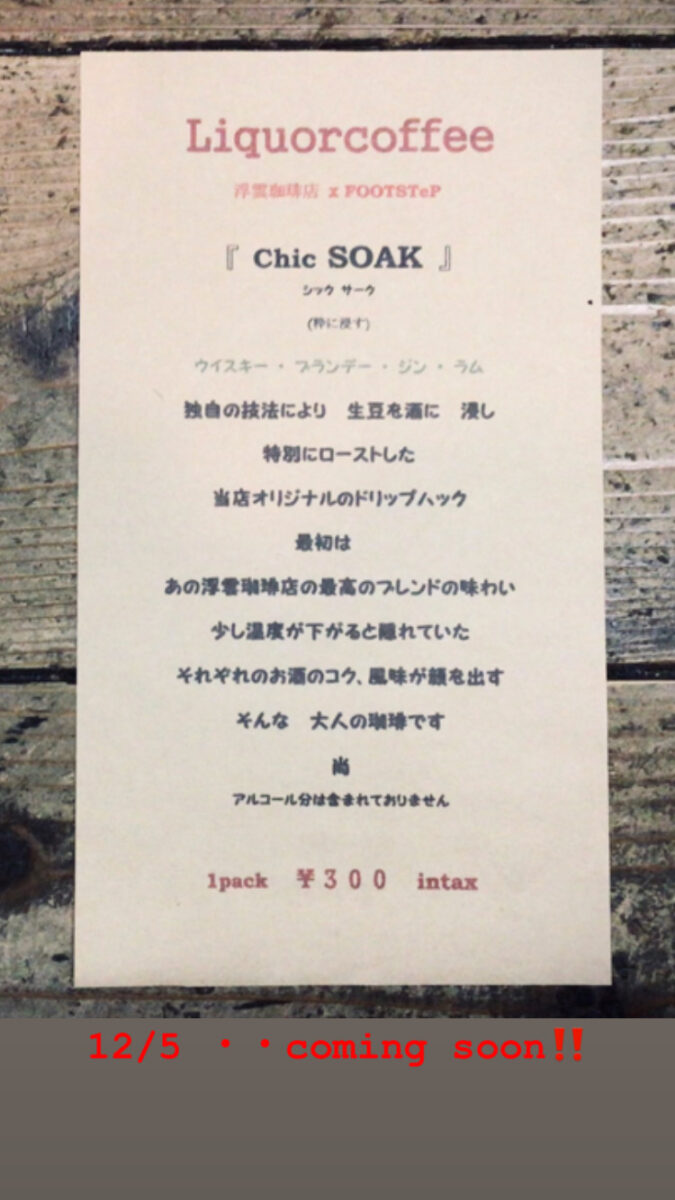 Liquorcoffee
浮雲珈琲店 x FOOTSTeP
『 Chic SOAK 』
シック サーク
(粋に浸す)
ウイスキー ・ ブランデー ・ ジン ・ ラム
独自の技法により 生豆を酒に 浸し
特別にローストした
当店オリジナルのドリップハック
最初は
あの浮雲珈琲店の最高のブレンドの味わい
少し温度が下がると隠れていた
それぞれのお酒のコク、風味が顔を出す
そんな 大人の珈琲です
尚
アルコール分は含まれておりません
1pack ¥300 intax
12/5 ・・coming soon‼